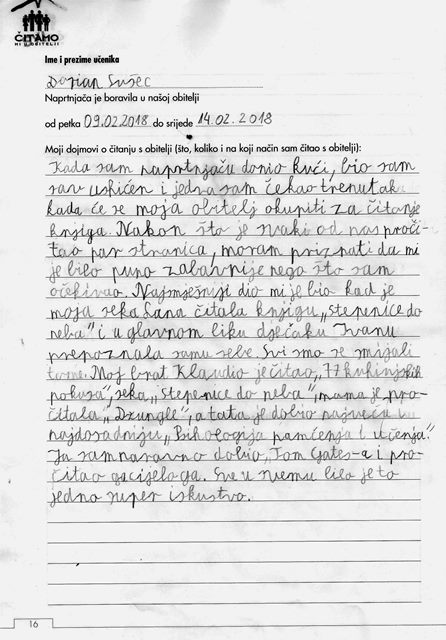 ČITAMO
MI U OBITELJI
Ime i prezime učenika
Dorian Sušec
Naprtnjača je boravila u našoj obitelji
od petka 09.02.2018 do srijede 14.02.2018
Moji dojmovi o čitanju s obitelji (što, koliko i na koji način sam čitao s obitelji):
Kada sam naprtnjaču donio kući, bio sam
sav ushićen i jedva sam čekao trenutak
kada će se moja obitelj okupiti za čitanje
knjiga. Nakon što je svaki od nas proči-
tao par stranica, moram priznati da mi
je bilo puno zabavnije nego što sam
očekivao. Najsmješniji dio mi je bio kad je
moja seka Lana čitala knjigu „Stepenice do
neba" i u glavnom liku dječaku Ivanu
prepoznala samu sebe. Svi smo se smijali
tome. Moj brat Klaudio je čitao „77 kuhinjskih
pokusa", seka „Stepenice do neba", mama je pro-
čitala „Džungle", a tata je dobio najveću i
najdosadniju „Psihologija pamćenja i učenja."
Ja sam naravno dobio „Tom Gates-a i pro-
čitao ga cijeloga. Sve u svemu bilo je to
jedno super iskustvo.
16